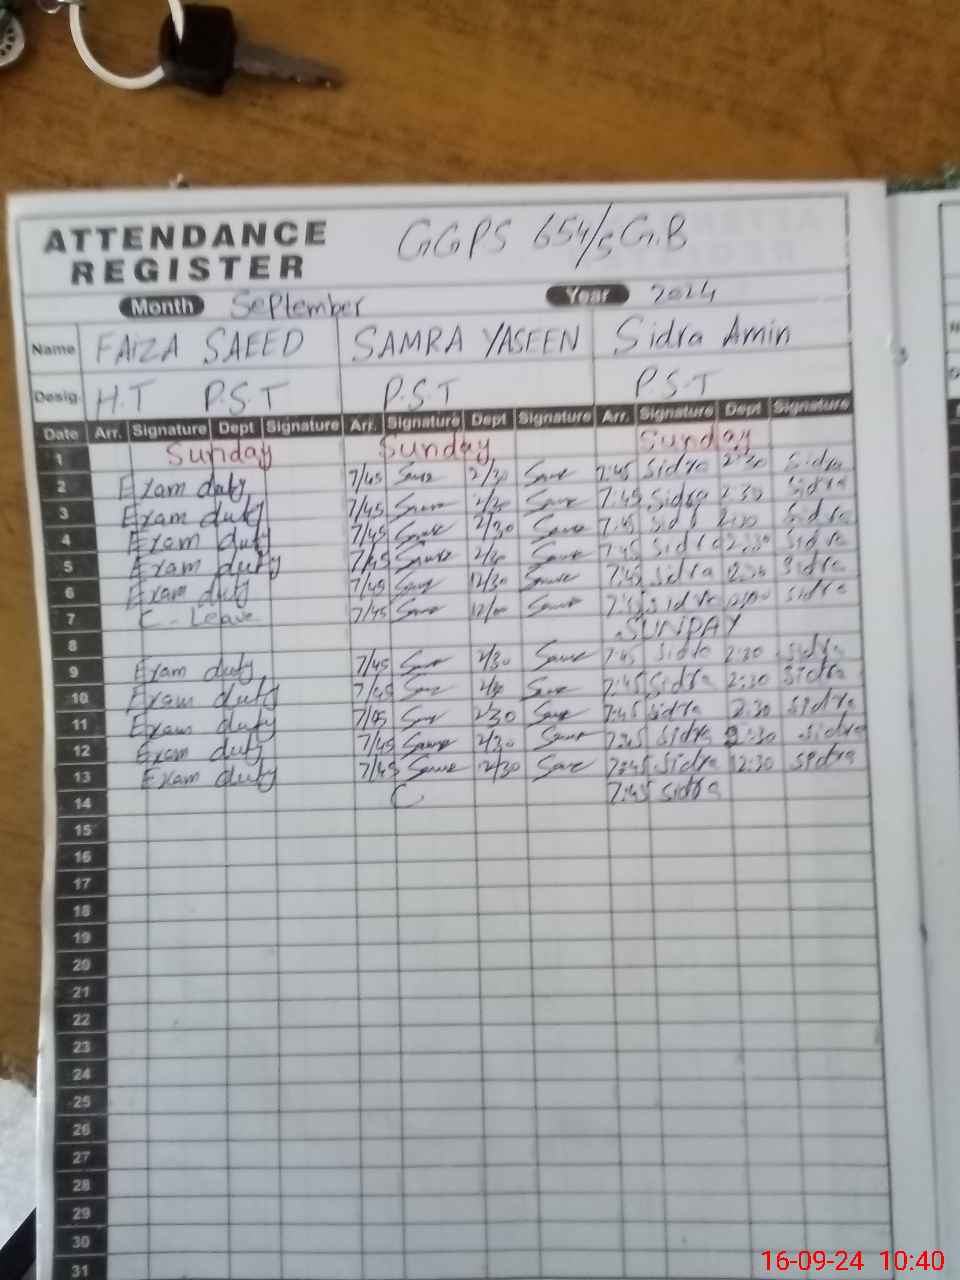 ATTENDANCE REGISTER GGPS 654/5 G.B
Month September Year 2024
Name FAIZA SAEED SAMRA YASEEN Sidra Amin
Desig. H.T P.S.T P.S.T P.S.T
Date Arr. Signature Dept Signature Arr. Signature Dept Signature Arr. Signature Dept Signature
1 Sunday Sunday Sunday
2 Exam duty 7/45 2/30 7:45 Sidra 2:30 Sidra
3 Exam duty 7/45 7:45 Sidra 2:30 Sidra
4 Exam duty 7/45 2/30 7:45 Sidra Sidra
5 Exam duty 7/45 7:45 Sidra 2:30 Sidra
6 Exam duty 7/45 12/30 7:45 Sidra Sidra
7 C-Leave 7/45 12/00 Sidra Sidra
8 SUNDAY
9 Exam duty 7/45 2/30 7:45 Sidra 2:30 Sidra
10 Exam duty 7/45 7:45 Sidra 2:30 Sidra
11 Exam duty 7/45 2/30 7:45 Sidra 2:30 Sidra
12 Exam duty 7/45 2/30 7:45 Sidra 2:30 Sidra
13 Exam duty 7/45 12/30 7:45 Sidra 12:30 Sidra
14 C 7:45 Sidra
15
16
17
18
19
20
21
22
23
24
25
26
27
28
29
30
31
16-09-24 10:40